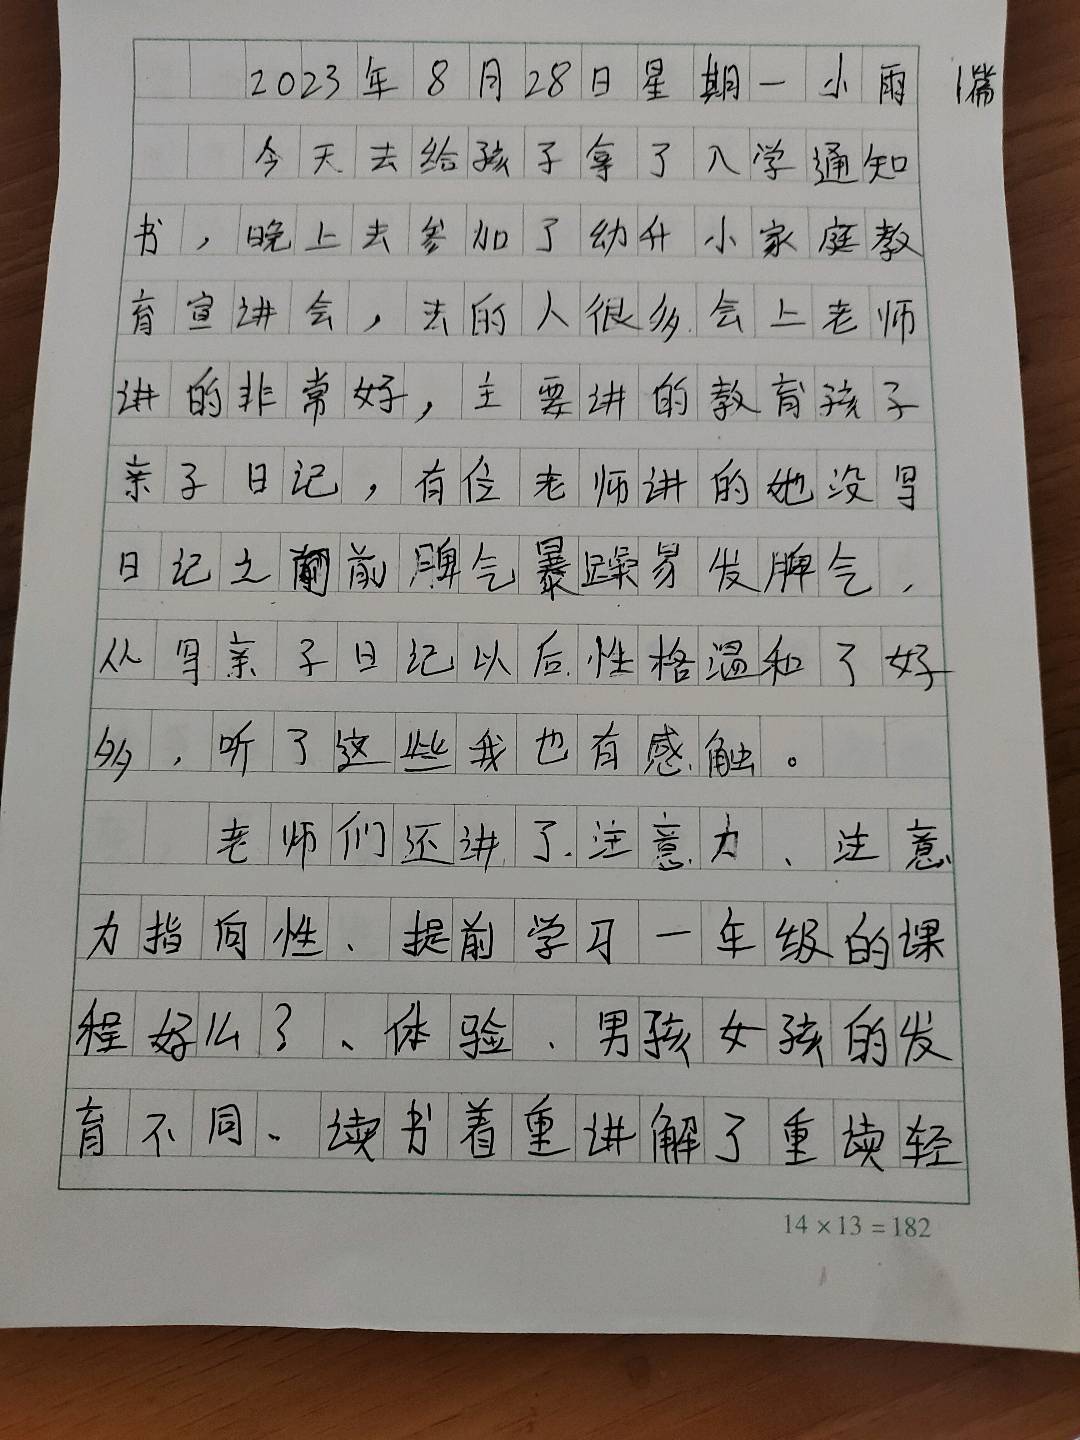 2023年8月28日星期一小雨 1篇
今天去给孩子拿了入学通知
书，晚上去参加了幼升小家庭教
育宣讲会，去的人很多.会上老师
讲的非常好，主要讲的教育孩子
亲子日记，有位老师讲的她没写
日记之前脾气暴躁易发脾气，
从写亲子日记以后.性格温和了好
多，听了这些我也有感触。
老师们还讲了.注意力、注意
力指向性、提前学习一年级的课
程好么？、体验、男孩女孩的发
育不同、读书着重讲解了重读轻
14×13=182